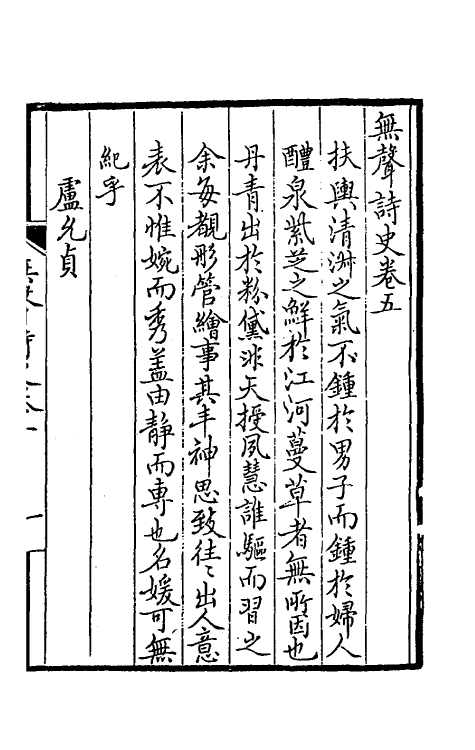 無聲詩史卷五
扶輿清淑之氣不鍾於男子而鍾於婦人
醴泉紫芝之鮮於江河蔓草者無所因也
丹青出於粉黛非天授夙慧誰驅而習之
余每覩彤管繪事其丰神思致往〻出人意
表不惟婉而秀蓋由靜而專也名媛可無
紀乎
盧允貞